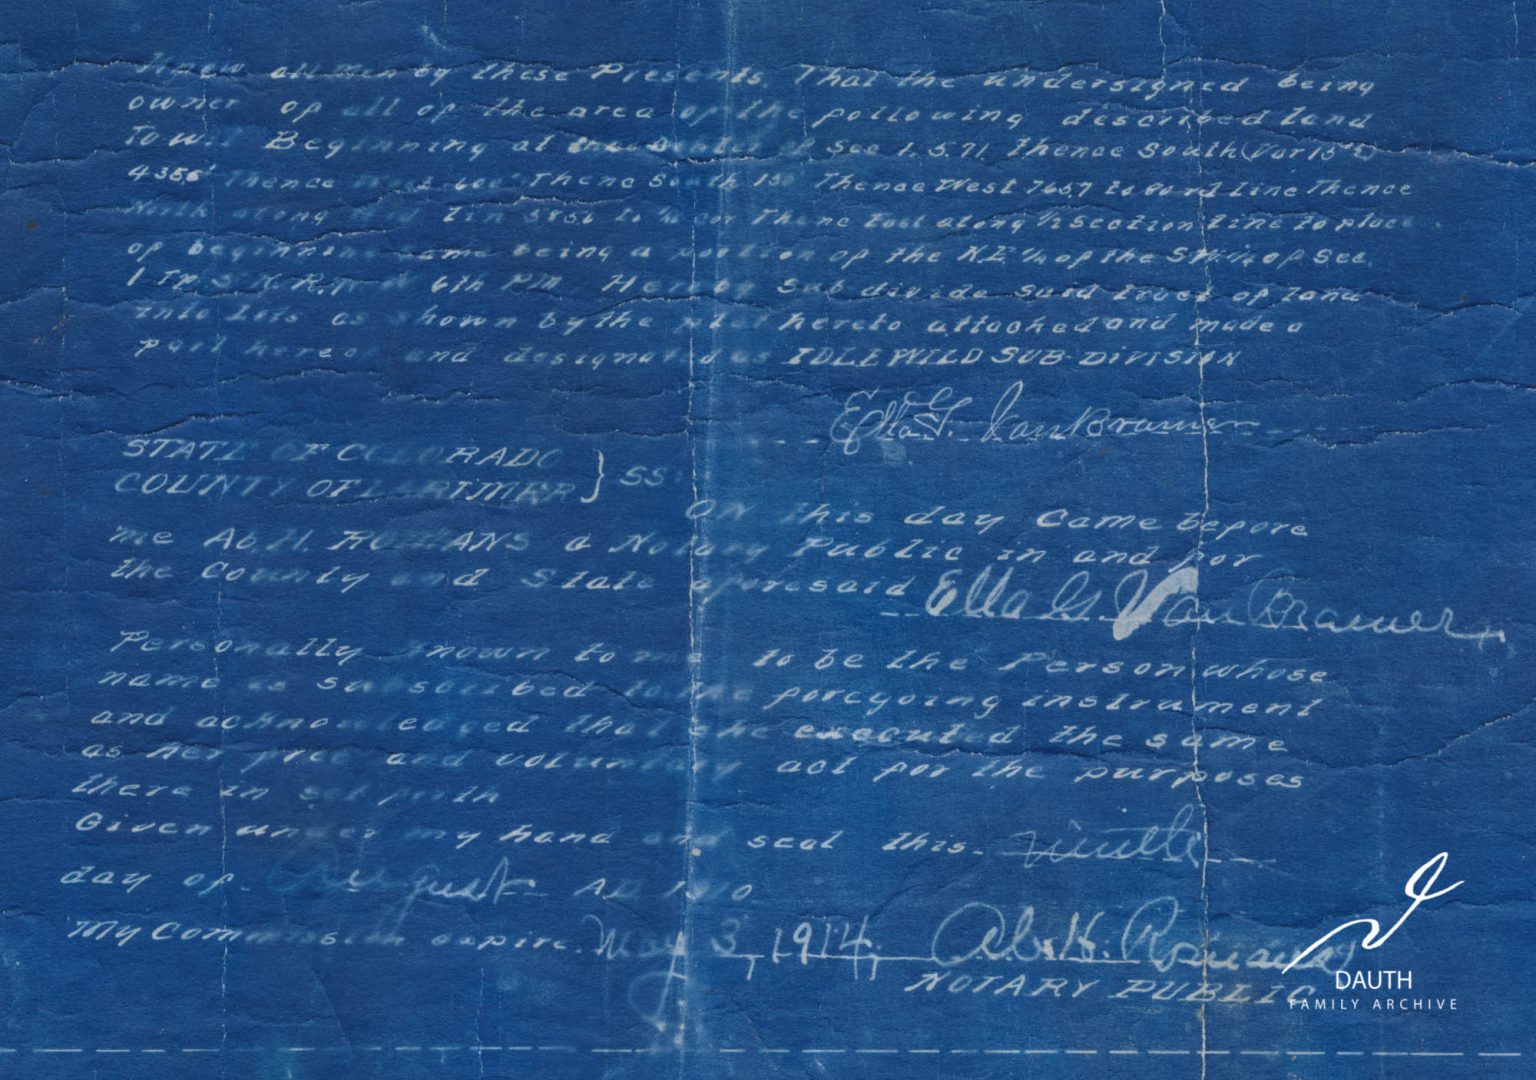 Know all men by these Presents. That the undersigned being
owner of all of the area of the following described land
To Wit Beginning at of Sec 1.5.71 thence South (Var 15°
4386' Thence 600' Thenc South 150 Thence West 765.7 to Bo rd line Thence
North along lin to ¼ cor Thenc East along ½ section line to place
of beginning same being a portion of the N.E ¼ of the SW ¼ of Sec.
1 Tp. 5 N.R. 6th P.M. Hereby Subdivide said tract of land
into lots as shown by the plat hereto attached and made a
part hereof and designated as IDLEWILD SUB-DIVISION
Ella G. Van Bramer
STATE OF COLORADO
COUNTY OF LARIMER } SS:
On this day came before
me Ab. H. ROMANS a Notary Public in and for
the County and State aforesaid Ella G. Van Bramer
Personally known to me to be the Person whose
name is subscribed to the foregoing instrument
and acknowledged that she executed the same
as her free and voluntary act for the purposes
there in set forth
Given under my hand and seal this
day of August A.D. 1910
My Commission expire. May 3, 1914. Ab. H. Romans
NOTARY PUBLIC
DAUTH
FAMILY ARCHIVE